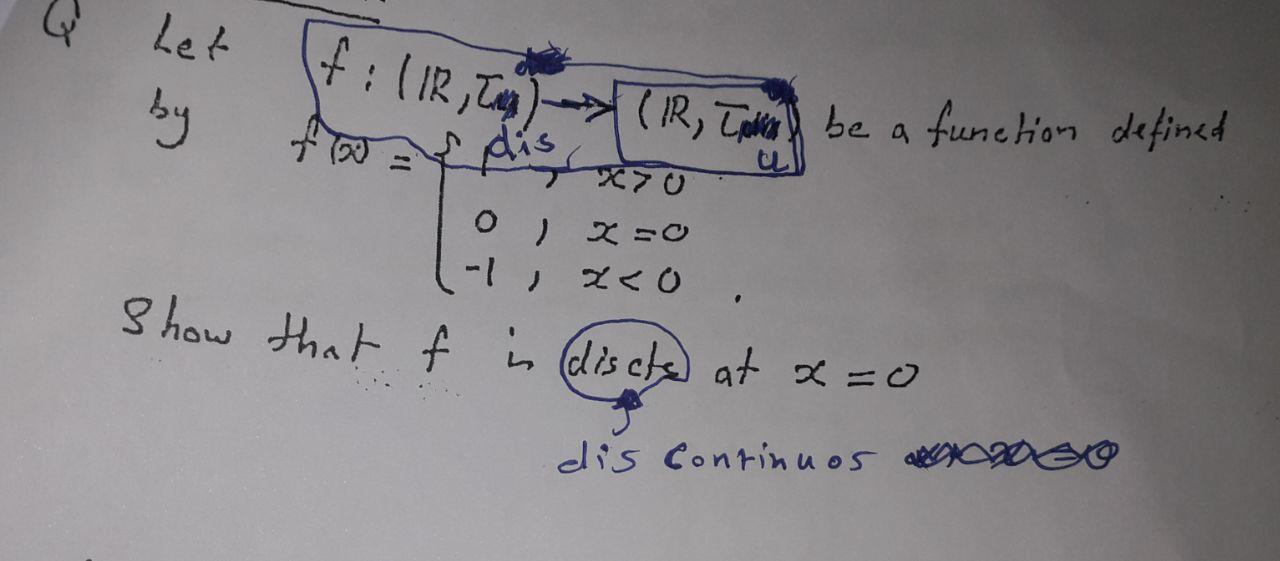 Q Let f : (IR, τ dis) → (IR, τ u) be a function defined
by f(x) = { 1 , x > 0
0 , x = 0
-1 , x < 0 .
Show that f is discts at x = 0
dis continuos